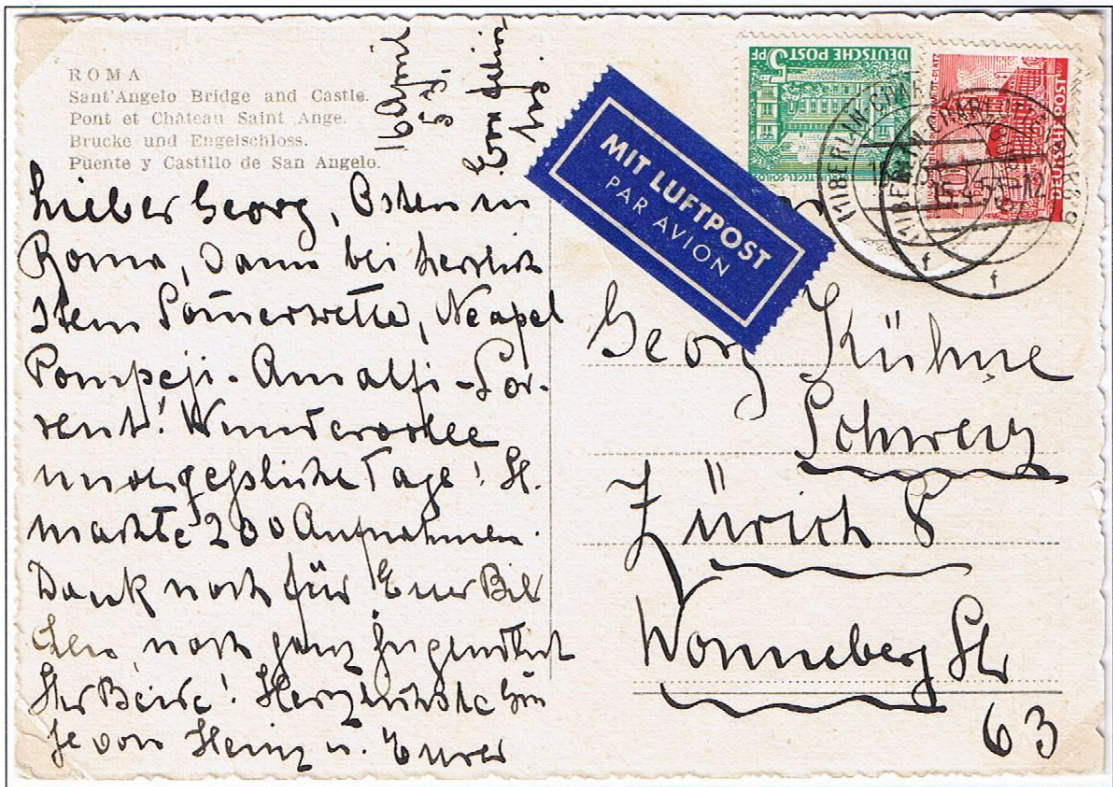 ROMA
Sant'Angelo Bridge and Castle.
Pont et Château Saint Ange.
Brucke und Engelschloss.
Puente y Castillo de San Angelo.
16 April
53,
Lieber Georg, Ostern in
Roma, dann bei herrlich
stem Somerwetter, Neapel
Pompeji - Amalfi - Sor-
rent! Wundervolle
unvergessliche Tage! H.
machte 200 Aufnahmen.
Dank noch für Euer Bild
chen, noch ganz jugendlich
Ihr Beide! Herzlichste Grü
sse von Heinz u. Eurer
MIT LUFTPOST
PAR AVION
5 PF
DEUTSCHE POST
DEUTSCHE POST
BERLIN-CHARL
Georg Kühne
Schweiz
Zürich 8
Wonneberg Str
63